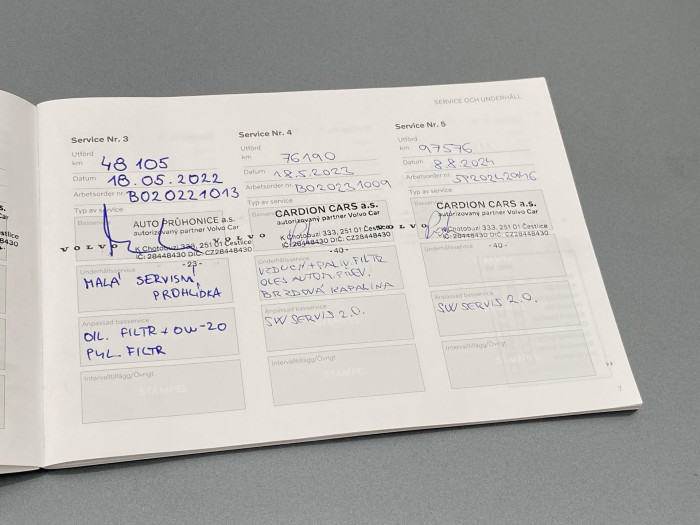 SERVICE OCH UNDERHÅLL
Service Nr. 3
Utförd
km 48 105
Datum 18.05.2022
Arbetsorder nr. BO20221013
Typ av service
AUTO PRŮHONICE a.s.
autorizovaný partner Volvo Car
VOLVO
K Chotobuzi 333, 251 01 Čestlice
IČ: 28448430 DIČ: CZ28448430
-23-
Underhållsservice
MALÁ SERVISNÍ
PROHLÍDKA
Anpassad basservice
OIL. FILTR + OW-20
PYL. FILTR
Intervalltillägg/Övrigt
STÄMPEL
Service Nr. 4
Utförd
km 76190
Datum 18.5.2023
Arbetsorder nr. BO20231009
Typ av service
CARDION CARS a.s.
autorizovaný partner Volvo Car
VOLVO
K Chotobuzi 333, 251 01 Čestlice
IČ: 28448430 DIČ: CZ28448430
-40-
Underhållsservice
VZDUCH + PALIV. FILTR
OLEJ AUTOM. PŘEV.
BRZDOVÁ KAPALINA
Anpassad basservice
SW SERVIS 2.0.
Intervalltillägg/Övrigt
Service Nr. 5
Utförd
km 97576
Datum 8.8.2024
Arbetsorder nr.
Typ av service
CARDION CARS a.s.
autorizovaný partner Volvo Car
VOLVO
K Chotobuzi 333, 251 01 Čestlice
IČ: 28448430 DIČ: CZ28448430
-40-
Underhållsservice
Anpassad basservice
SW SERVIS 2.0.
Intervalltillägg/Övrigt
7